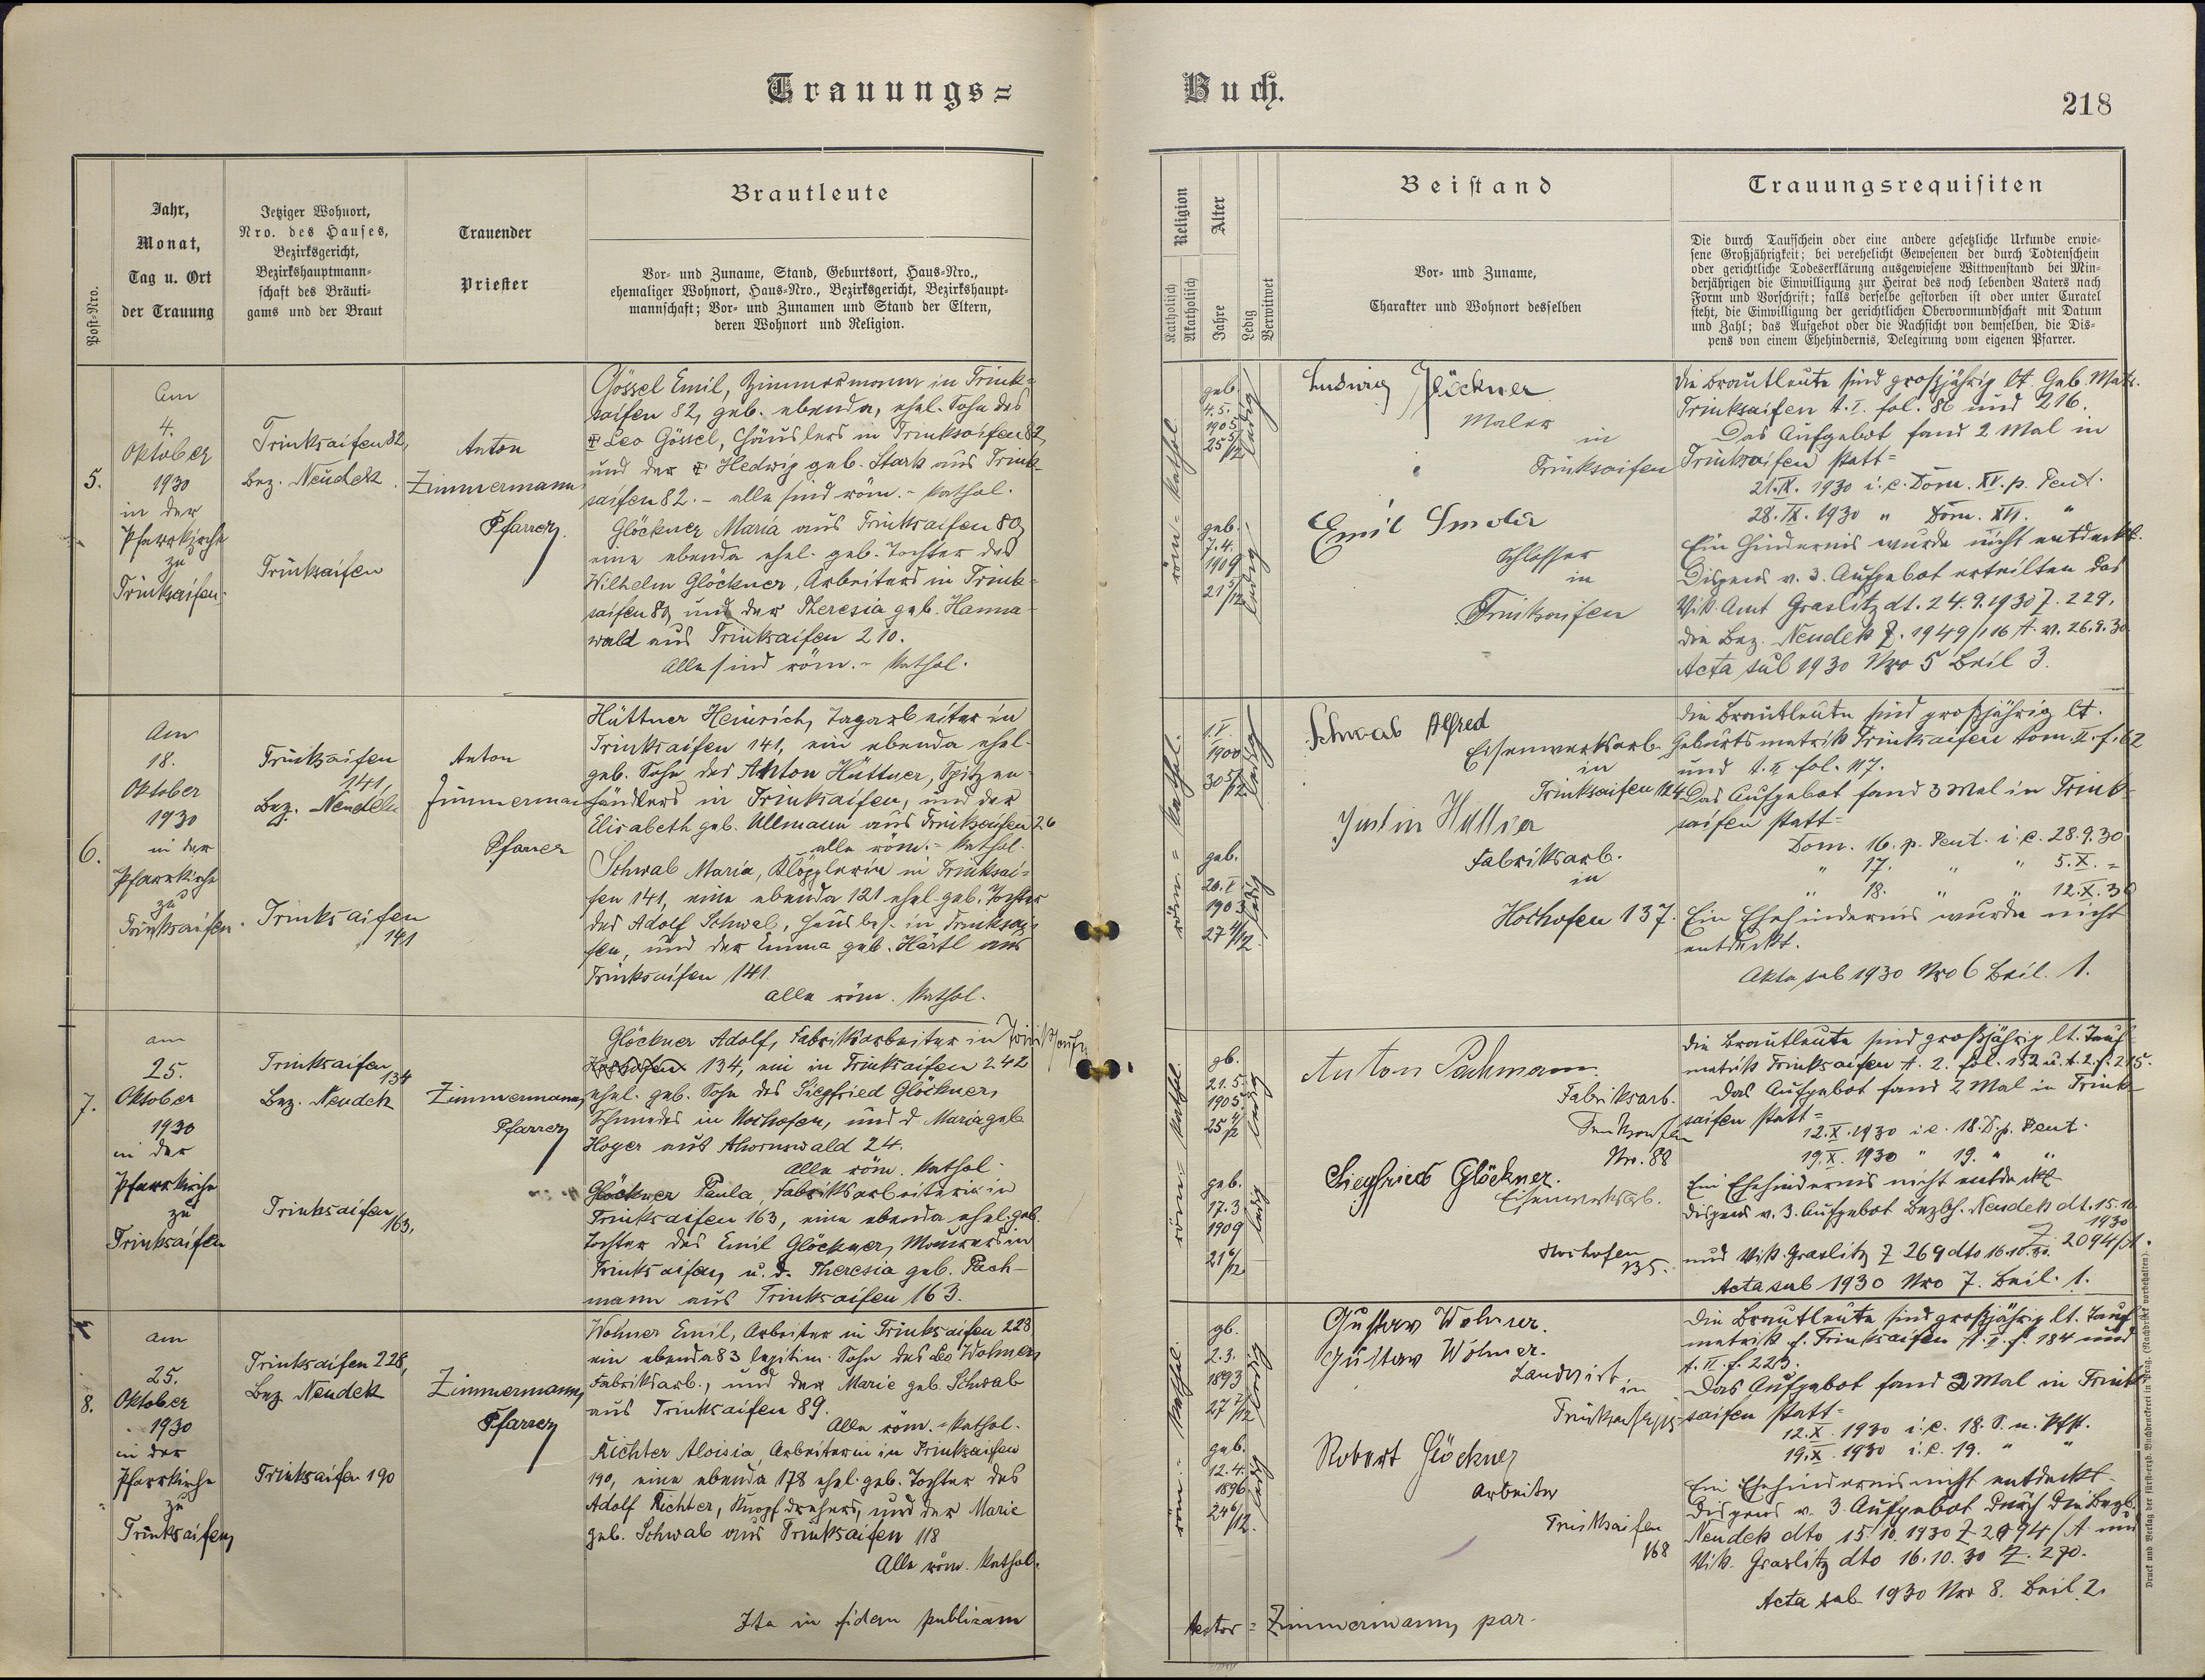 Trauungs=
Buch.
218
Post-Nro.
Jahr,
Monat,
Tag u. Ort
der Trauung
Jetziger Wohnort,
Nro. des Hauses,
Bezirksgericht,
Bezirkshauptmann-
schaft des Bräuti-
gams und der Braut
Trauender
Priester
Brautleute
Vor- und Zuname, Stand, Geburtsort, Haus-Nro.,
ehemaliger Wohnort, Haus-Nro., Bezirksgericht, Bezirkshaupt-
mannschaft; Vor- und Zunamen und Stand der Eltern,
deren Wohnort und Religion.
Religion
Katholisch
Akatholisch
Alter
Jahre
Ledig
Verwitwet
Beistand
Vor- und Zuname,
Charakter und Wohnort desselben
Trauungsrequisiten
Die durch Taufschein oder eine andere gesetzliche Urkunde erwie-
sene Großjährigkeit; bei verehelicht Gewesenen der durch Todtenschein
oder gerichtliche Todeserklärung ausgewiesene Wittwenstand bei Min-
derjährigen die Einwilligung zur Heirat des noch lebenden Vaters nach
Form und Vorschrift; falls derselbe gestorben ist oder unter Curatel
steht, die Einwilligung der gerichtlichen Obervormundschaft mit Datum
und Zahl; das Aufgebot oder die Nachsicht von demselben, die Dis-
pens von einem Ehehindernis, Delegirung vom eigenen Pfarrer.
5.
Am
4.
Oktober
1930
in der
Pfarrkirche
zu
Trinksaifen.
Trinksaifen 82,
Bez. Neudek.
Trinksaifen
Anton
Zimmermann
Pfarrer
Gössel Emil, Zimmermann in Trink-
saifen 82, geb. ebenda, ehel. Sohn des
✝ Leo Gössel, Häuslers in Trinksaifen 82,
und der ✝ Hedwig geb. Stark aus Trink-
saifen 82. - alle sind röm.- kathol.
Glöckner Maria aus Trinksaifen 80,
eine ebenda ehel. geb. Tochter des
Wilhelm Glöckner, Arbeiters in Trink-
saifen 80, und der Theresia geb. Hanna-
wald aus Trinksaifen 210.
Alle sind röm.- kathol.
röm.- kathol
geb.
4.5.
1905
25 5/12
ledig
geb.
7.4.
1909
21 5/12
ledig
Ludwig Glöckner
Maler
in
Trinksaifen
Emil
Schlosser
in
Trinksaifen
Die Brautleute sind großjährig lt. Geb. Matr.
Trinksaifen t. I. fol. 86 und 216.
Das Aufgebot fand 2 Mal in
Trinksaifen statt=
21.IX. 1930 i. e. Dom. XV. p. Pent.
28. IX. 1930 " Dom. XVI. "
Ein Hindernis wurde nicht entdeckt.
Dispens v. 3. Aufgebot erteilten das
Vik. Amt Graslitz dt. 24.9.1930 Z. 229,
die Bez. Neudek Z. 1949/116 A. v. 26.9.30
Acta sub 1930 Nro 5 Beil 3.
6.
Am
18.
Oktober
1930
in der
Pfarrkirche
zu
Trinksaifen.
Trinksaifen
141,
Bez. Neudek
Trinksaifen
141
Anton
Zimmermann
Pfarrer
Hüttner Heinrich, Tagarbeiter in
Trinksaifen 141, ein ebenda ehel.
geb. Sohn des Anton Hüttner, Spitzen-
händlers in Trinksaifen, und der
Elisabeth geb. Ullmann aus Trinksaifen 26
alle röm.- kathol.
Schwab Maria, Klöpplerin in Trinksai-
fen 141, eine ebenda 121 ehel. geb. Tochter
des Adolf Schwab, Hausbes. in Trinksai-
fen, und der Emma geb. Härtl aus
Trinksaifen 141.
alle röm. kathol.
röm.= kathol.
1.V.
1900
30 5/12
ledig
geb.
20.I.
1903
27 /12
ledig
Schwab Alfred
Eisenwerksarb.
in
Trinksaifen
Fabriksarb.
in
Hochofen 137.
Die Brautleute sind großjährig lt.
Geburtsmatrik Trinksaifen tom. II. f. 62
und t. II fol. 117.
Das Aufgebot fand 3 Mal in Trink-
saifen statt=
Dom. 16. p. Pent. i. e. 28.9.30
" 17. " " 5.X. =
" 18. " " 12.X.30
Ein Ehehindernis wurde nicht
entdeckt.
Akta sub 1930 Nro 6 Beil. 1.
7.
am
25.
Oktober
1930
in der
Pfarrkirche
zu
Trinksaifen
Trinksaifen
134
Bez. Neudek
Trinksaifen
163,
Zimmermann,
Pfarrer
Glöckner Adolf, Fabriksarbeiter in Trinksaifen
Hochofen 134, ein in Trinksaifen 242
ehel. geb. Sohn des Siegfried Glöckner,
Schmiedes in Hochofen, und d. Maria geb.
Hoyer aus Ahornswald 24.
Alle röm. kathol.
Glöckner Paula, Fabriksarbeiterin in
Trinksaifen 163, eine ebenda ehel. geb.
Tochter des Emil Glöckner, Maurers in
Trinksaifen, u. d. Theresia geb. Pach-
mann aus Trinksaifen 163.
röm.- kathol.
gb.
21.5.
1905
25 /12
ledig
geb.
17.3
1909
21 6/12
ledig
Anton Pachmann.
Fabriksarb.
Trinksaifen
Nro. 88
Siegfried Glöckner.
Eisenwerksarb.
Hochofen
135.
Die Brautleute sind großjährig lt. Tauf-
matrik Trinksaifen t. 2. fol. 132 u. t. 2. f. 215.
Das Aufgebot fand 2 Mal in Trink-
saifen statt=
12.X.1930 i. e. 18. D. p. Pent.
19.X. 1930 " 19. " "
Ein Ehehindernis nicht entdeckt
Dispens v. 3. Aufgebot Bezbh. Neudek dt. 15.10.
1930
Z. 2094/A.
und Vik. Graslitz Z 269 dto 16.10.30.
Acta sub 1930 Nro 7. Beil. 1.
8.
am
25.
Oktober
1930
in der
Pfarrkirche
zu
Trinksaifen,
Trinksaifen 228,
Bez. Neudek
Trinksaifen 190
Zimmermann,
Pfarrer
Wohner Emil, Arbeiter in Trinksaifen 228
ein ebenda 83 legitim. Sohn des Leo Wohner,
Fabriksarb., und der Marie geb. Schwab
aus Trinksaifen 89.
Alle röm.- kathol.
Richter Aloisia, Arbeiterin in Trinksaifen
190, eine ebenda 178 ehel. geb. Tochter des
Adolf Richter, Knopfdrehers, und der Marie
geb. Schwab aus Trinksaifen 118
Alle röm. kathol.
röm.- kathol.
gb.
2.3.
1893
27 7/12
ledig
geb.
12.4.
1896
24 6/12.
ledig
Gustav Wohner.
Gustav Wohner.
Landwirt
in
Robert Glöckner
Arbeiter
Trinksaifen
168
Die Brautleute sind großjährig lt. Tauf-
matrik f. Trinksaifen t. I. f. 184 und
t. II. f. 223.
Das Aufgebot fand 2 Mal in Trink-
saifen statt=
12.X. 1930 i. e. 18. S. n. Pfst.
19.X. 1930 i. e. 19. " "
Ein Ehehindernis nicht entdeckt.
Dispens v. 3. Aufgebot durch die Bezb.
Neudek dto 15.10.1930 Z 2094/A und
Vik. Graslitz dto 16.10.30 Z. 270.
Acta sub 1930 Nro 8. Beil 2.
Ita in fidem publicam
Zimmermann, par.
Druck und Verlag der fürst-erzb. Buchdruckerei in Prag. (Nachdruck vorbehalten).